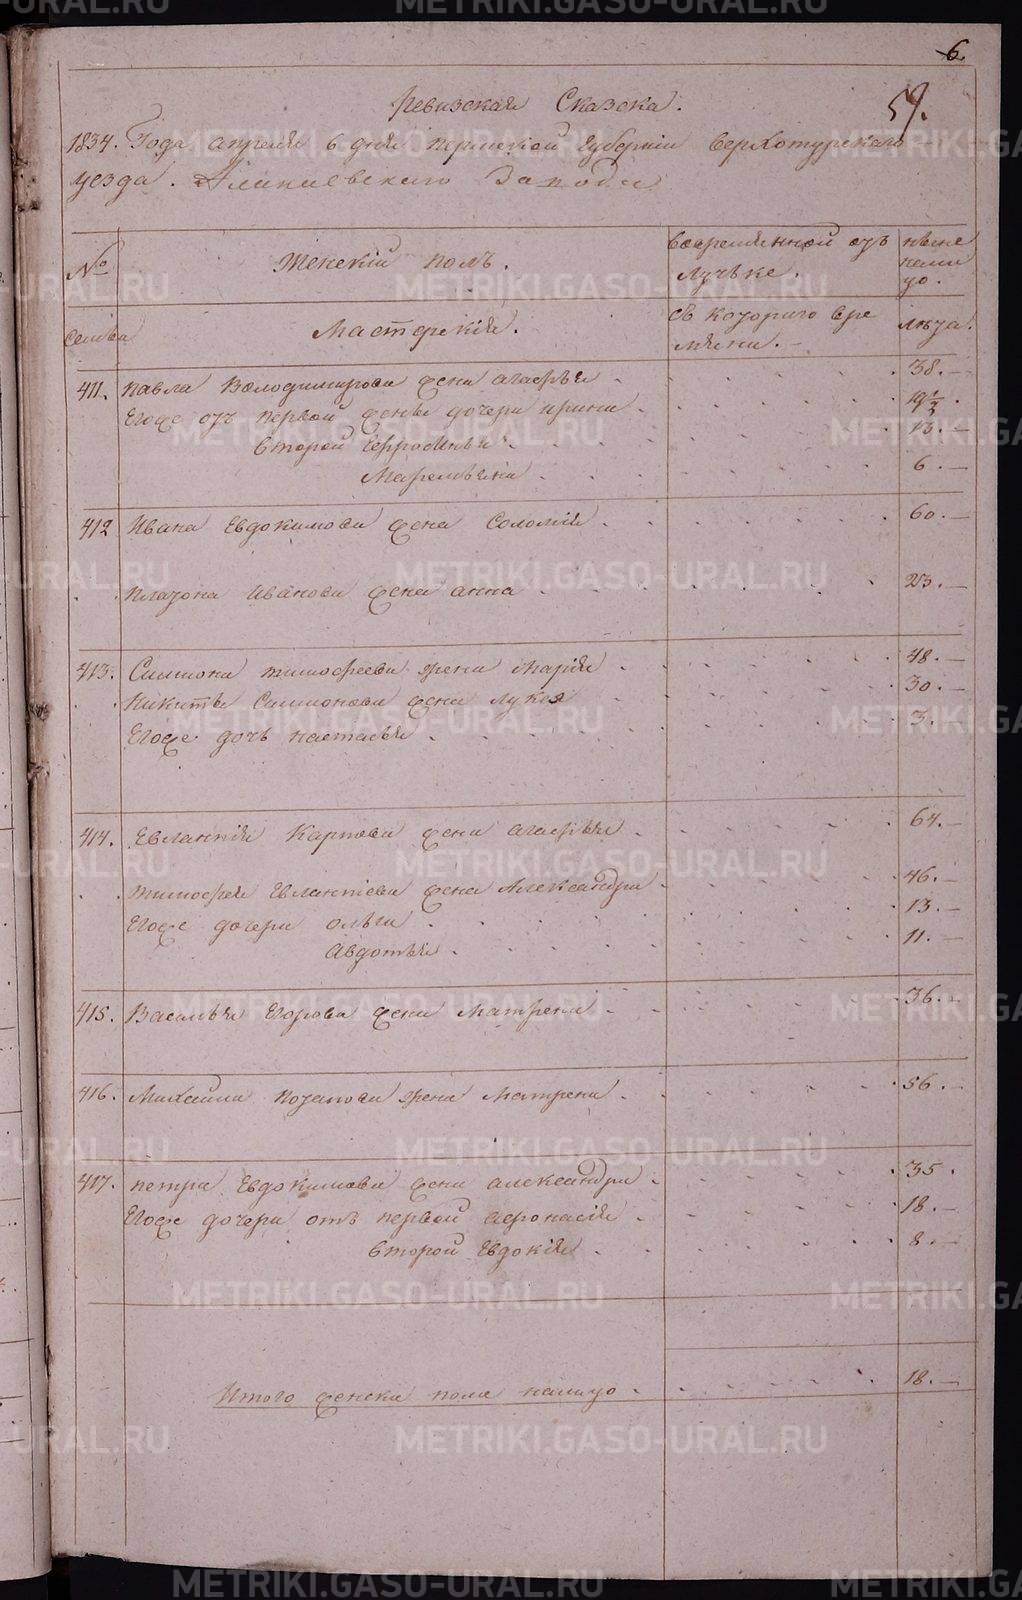 6
59.
Ревизская Сказка.
1834. Года апреля 6 дня пермской Губернии Верхотурскаго
уезда. Алапаевскаго Завода
№
семьи
Женский полъ.
Мастерскія.
Вовременной отъ
лучьке.
съ котораго вре
мяни.
ныне
нали
цо.
лѣта.
411. Павла Володимирова жена агафья . 38.
Егоже отъ первой жены дочери ирина . 19 1/2
второй Ефросинья . 13.
Маремьяна . 6.
412 Ивана Евдокимова жена Соломия . 60.
Платона Иванова жена анна . 23.
413. Симиона тимофеева жена Мария . 48.
Никиты Симионова жена лукея 30.
Егоже дочь настасья . 3.
414. Евлампия Карпова жена агафья . 64.
тимофея Евлампиева жена Александра . 46.
Егоже дочери ольга . 13.
Авдотья . 11.
415. Василья Егорова жена Матрена . 36.
416. Михаила Потапова жена Матрена . 56.
417. петра Евдокимова жена александра . 35.
Егоже дочери отъ первой афонасия . 18.
второй Евдокия . 8.
Итого женска пола налицо . 18.
METRIKI.GASO-URAL.RU